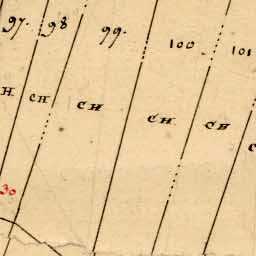 97. 98 99. 100. 101
H CH CH CH CH C
30